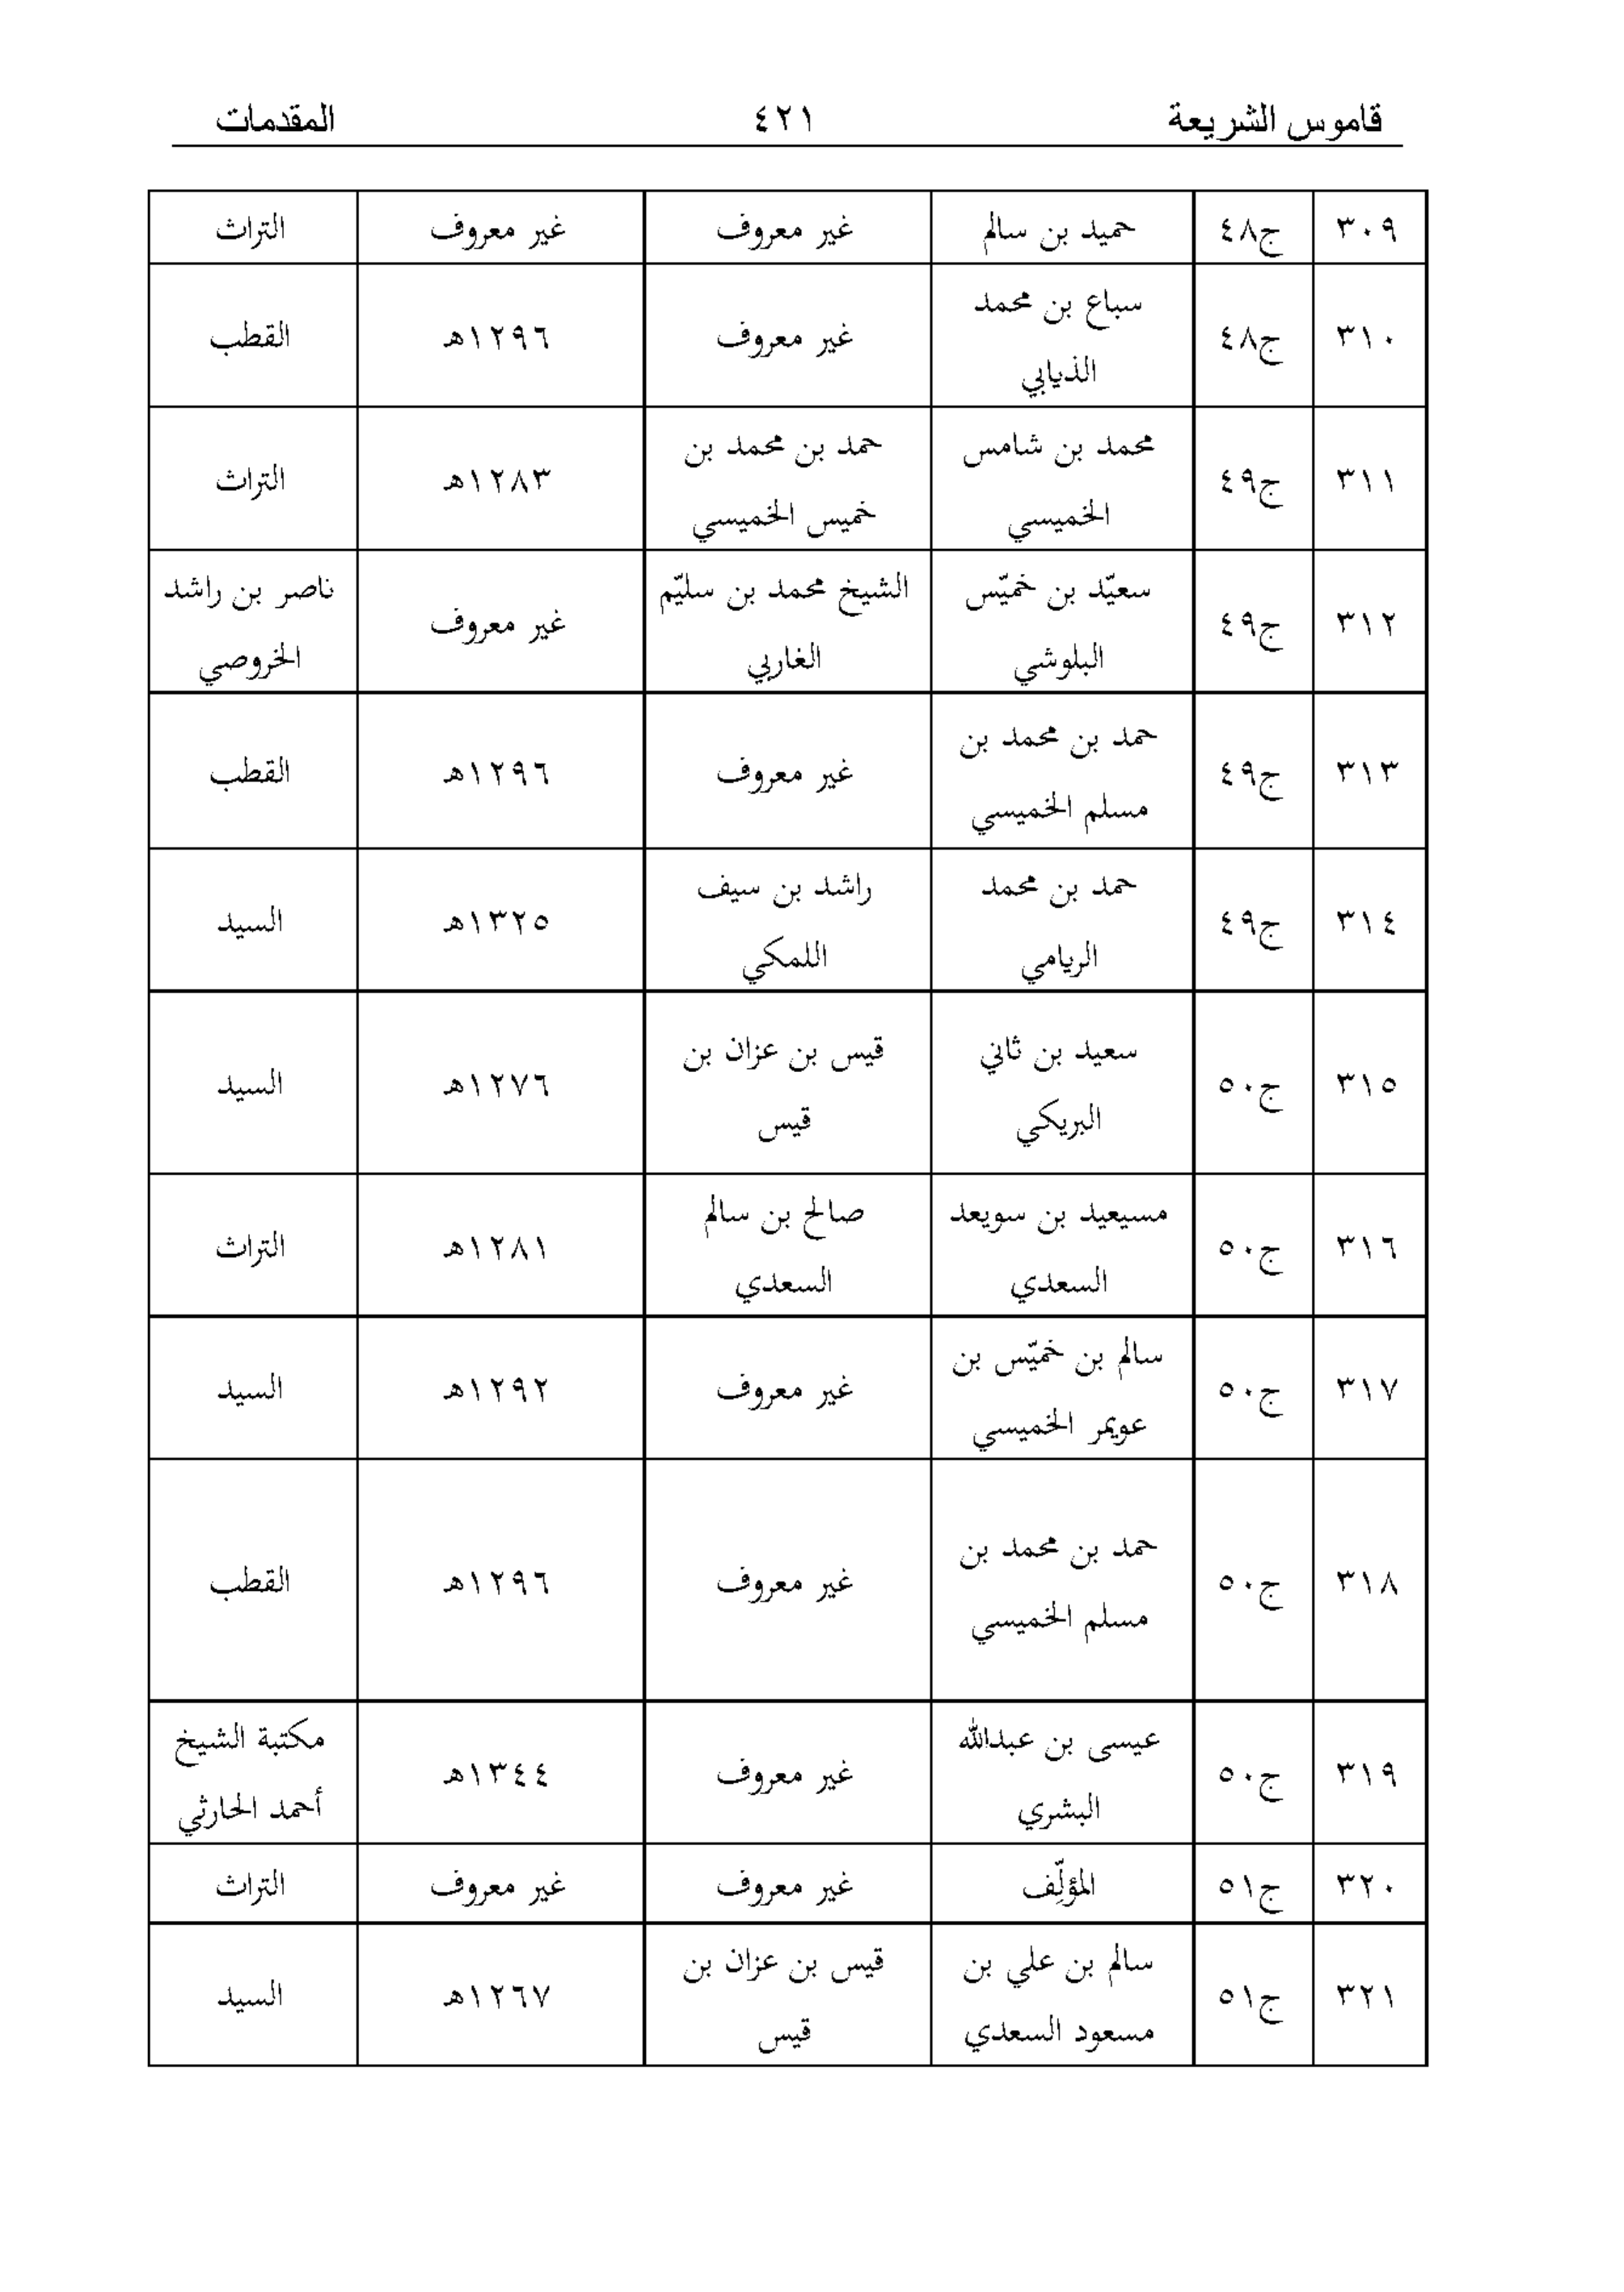 قاموس الشريعة ٤٢١ المقدمات
٣٠٩ ج٤٨ حميد بن سالم غير معروف غير معروف التراث
٣١٠ ج٤٨ سباع بن محمد الذيابي غير معروف ١٢٩٦هـ القطب
٣١١ ج٤٩ محمد بن شامس الخميسي حمد بن محمد بن خميس الخميسي ١٢٨٣هـ التراث
٣١٢ ج٤٩ سعيّد بن خميّس البلوشي الشيخ محمد بن سليّم الغاربي غير معروف ناصر بن راشد الخروصي
٣١٣ ج٤٩ حمد بن محمد بن مسلم الخميسي غير معروف ١٢٩٦هـ القطب
٣١٤ ج٤٩ حمد بن محمد الريامي راشد بن سيف اللمكي ١٣٢٥هـ السيد
٣١٥ ج٥٠ سعيد بن ثاني البريكي قيس بن عزان بن قيس ١٢٧٦هـ السيد
٣١٦ ج٥٠ مسيعيد بن سويعد السعدي صالح بن سالم السعدي ١٢٨١هـ التراث
٣١٧ ج٥٠ سالم بن خميّس بن عويمر الخميسي غير معروف ١٢٩٢هـ السيد
٣١٨ ج٥٠ حمد بن محمد بن مسلم الخميسي غير معروف ١٢٩٦هـ القطب
٣١٩ ج٥٠ عيسى بن عبدالله البشري غير معروف ١٣٤٤هـ مكتبة الشيخ أحمد الحارثي
٣٢٠ ج٥١ المؤلِّف غير معروف غير معروف التراث
٣٢١ ج٥١ سالم بن علي بن مسعود السعدي قيس بن عزان بن قيس ١٢٦٧هـ السيد